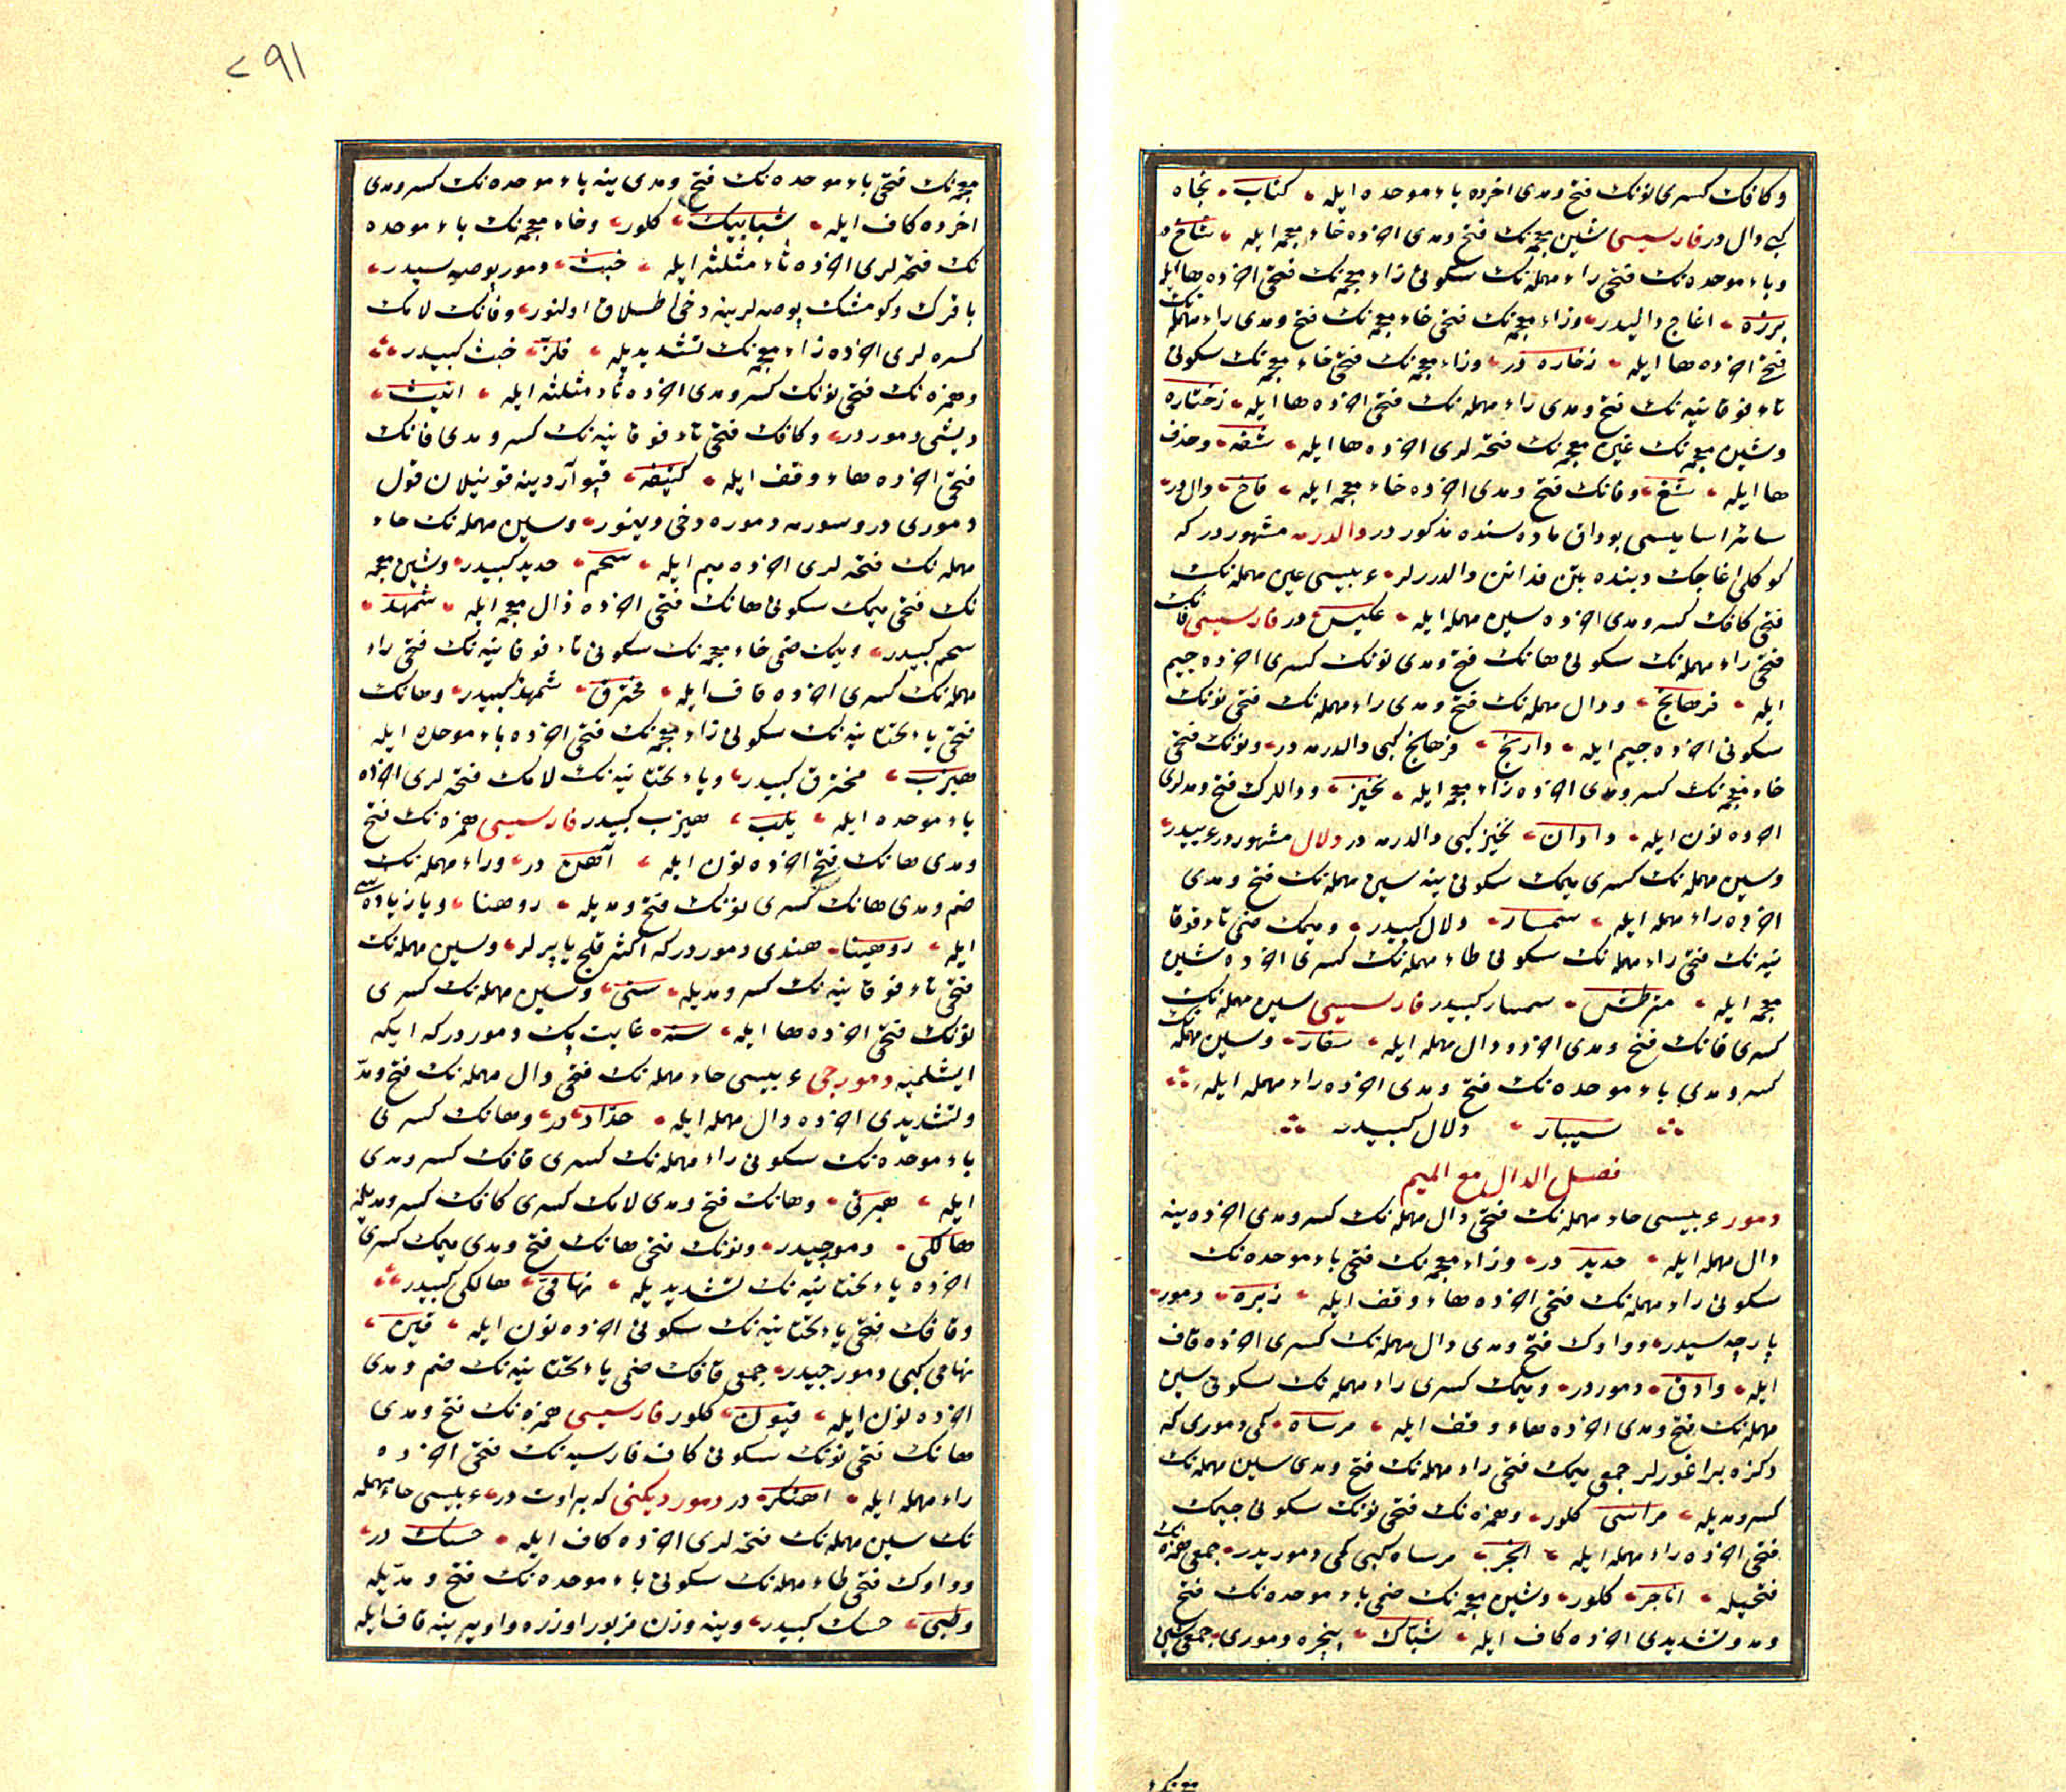 وكافك كسرى نونك فتح ومدى اخرده باء موحده ايله كناب نجاه
كبى دال در فارسيسى شين معجمه نك فتح ومدى اخرده خاء معجمه ايله شاخ در
وباء موحده نك فتحى راء مهمله نك سكونى زاء معجمه نك فتحى اخرده ها ايله
برزه اغاج داليدر وزاء معجمه نك فتحى خاء معجمه نك فتح ومدى راء مهمله نك
فتحى اخرده ها ايله زخاره در وزاء معجمه نك فتحى خاء معجمه نك سكونى
تاء فوقانيه نك فتح ومدى راء مهمله نك فتحى اخرده ها ايله زختاره
وشين معجمه نك غين معجمه نك فتحه لرى اخرده ها ايله شغه وحذف
ها ايله شغ وفانك فتح ومدى اخرده خاء معجمه ايله فاخ دال در
سائر اساميسى بوداق ماده سنده مذكور در دالدرمه مشهور در كه
كوكلى اغاجك ديبنده بتن فدانن دالدررلر عربيسى عين مهمله نك
فتحى كافك كسر ومدى اخرده سين مهمله ايله عكيس در فارسيسى فانك
فتحى راء مهمله نك سكونى هانك فتح ومدى نونك كسرى اخرده جيم
ايله فرهانج ودال مهمله نك فتح ومدى راء مهمله نك فتحى نونك
سكونى اخرده جيم ايله دارنج فرهانج كبى دالدرمه در ونونك فتحى
خاء معجمه نك كسر ومدى اخرده زاء معجمه ايله نخيز ودالرك فتح ومدلرى
اخرده نون ايله دادان نخيز كبى دالدرمه در دلال مشهور در عربيدر
وسين مهمله نك كسرى ميمك سكونى ينه سين مهمله نك فتح ومدى
اخرده راء مهمله ايله سمسار دلال كبيدر وميمك ضمى تاء فوقا
نيه نك فتحى راء مهمله نك سكونى طاء مهمله نك كسرى اخرده شين
معجمه ايله مترطش سمسار كبيدر فارسيسى سين مهمله نك
كسرى فانك فتح ومدى اخرده دال مهمله ايله سفار وسين مهمله نك
كسر ومدى باء موحده نك فتح ومدى اخرده راء مهمله ايله
سيبار دلال كبيدر
فصل الدال مع الميم
دمور عربيسى حاء مهمله نك فتحى دال مهمله نك كسر ومدى اخرده ينه
دال مهمله ايله حديد در وزاء معجمه نك فتحى باء موحده نك
سكونى راء مهمله نك فتحى اخرده هاء وقف ايله زبره دمور
پارچه سيدر وواوك فتح ومدى دال مهمله نك كسرى اخرده قاف
ايله وادق دمور در وميمك كسرى راء مهمله نك سكونى سين
مهمله نك فتح ومدى اخرده هاء وقف ايله مرساه كمى دمورى كه
دكزه براغورلر جمعى ميمك فتحى راء مهمله نك فتح ومدى سين مهمله نك
كسر ومديله مراسى كلور وهمزه نك فتحى نونك سكونى جيمك
فتحى اخرده راء مهمله ايله انجر مرساه كبى كمى دموريدر جمعى همزه نك
فتحيله اناجر كلور وشين معجمه نك ضمى باء موحده نك فتح
ومد وتشديدى اخرده كاف ايله شباك پنجره دمورى جمعى شين
معجمه نك
٢٩١
معجمه نك فتحى باء موحده نك فتح ومدى ينه باء موحده نك كسر ومدى
اخرده كاف ايله شبابيك كلور وخاء معجمه نك باء موحده
نك فتحه لرى اخرده ثاء مثلثه ايله خبث دمور بوصه سيدر
باقرك وكومشك بوصه لرينه دخى اطلاق اولنور وفانك لامك
كسره لرى اخرده زاء معجمه نك تشديديله فلز خبث كبيدر
وهمزه نك فتحى نونك كسر ومدى اخرده ثاء مثلثه ايله انيث
ديشى دمور در وكافك فتحى تاء فوقانيه نك كسر ومدى فانك
فتحى اخرده هاء وقف ايله كتيفه قپو آردينه قونيلان قول
دمورى در وسورمه دموره دخى دينور وسين مهمله نك حاء
مهمله نك فتحه لرى اخرده ميم ايله سحم حديد كبيدر وشين معجمه
نك فتحى ميمك سكونى هانك فتحى اخرده ذال معجمه ايله شمهذ
سحم كبيدر وميمك ضمى خاء معجمه نك سكونى تاء فوقانيه نك فتحى راء
مهمله نك كسرى اخرده قاف ايله مخترق شمهذ كبيدر وهانك
فتحى ياء تحتانيه نك سكونى زاء معجمه نك فتحى اخرده باء موحده ايله
هيزب مخترق كبيدر وياء تحتانيه نك لامك فتحه لرى اخرده
باء موحده ايله يلب هيزب كبيدر فارسيسى همزه نك فتح
ومدى هانك فتحى اخرده نون ايله آهن در وراء مهمله نك
ضم ومدى هانك كسرى نونك فتح ومديله روهنا ويا زياده سى
ايله روهينا هندى دمور در كه اكثر قلج ياپرلر وسين مهمله نك
فتحى تاء فوقانيه نك كسر ومديله ستى وسين مهمله نك كسرى
نونك فتحى اخرده ها ايله سنه غايت پك دمور در كه ايكه
ايشلميه دمورجى عربيسى حاء مهمله نك فتحى دال مهمله نك فتح ومد
وتشديدى اخرده دال مهمله ايله حداد در وهانك كسرى
باء موحده نك سكونى راء مهمله نك كسرى قافك كسر ومدى
ايله هبرقى وهانك فتح ومدى لامك كسرى كافك كسر ومديله
هالكى دمورجيدر ونونك فتحى هانك فتح ومدى ميمك كسرى
اخرده ياء تحتانيه نك تشديديله نهامى هالكى كبيدر
وقافك فتحى ياء تحتانيه نك سكونى اخرده نون ايله قين
نهامى كبى دمورجيدر جمعى قافك ضمى ياء تحتانيه نك ضم ومدى
اخرده نون ايله قيون كلور فارسيسى همزه نك فتح ومدى
هانك فتحى نونك سكونى كاف فارسيه نك فتحى اخرده
راء مهمله ايله اهنكر در دمور ديكنى كه بر اوت در عربيسى حاء مهمله
نك سين مهمله نك فتحه لرى اخرده كاف ايله حسك در
وواوك فتحى طاء مهمله نك سكونى باء موحده نك فتح ومديله
وطبى حسك كبيدر وينه وزن مزبور اوزره واو يرينه قاف ايله